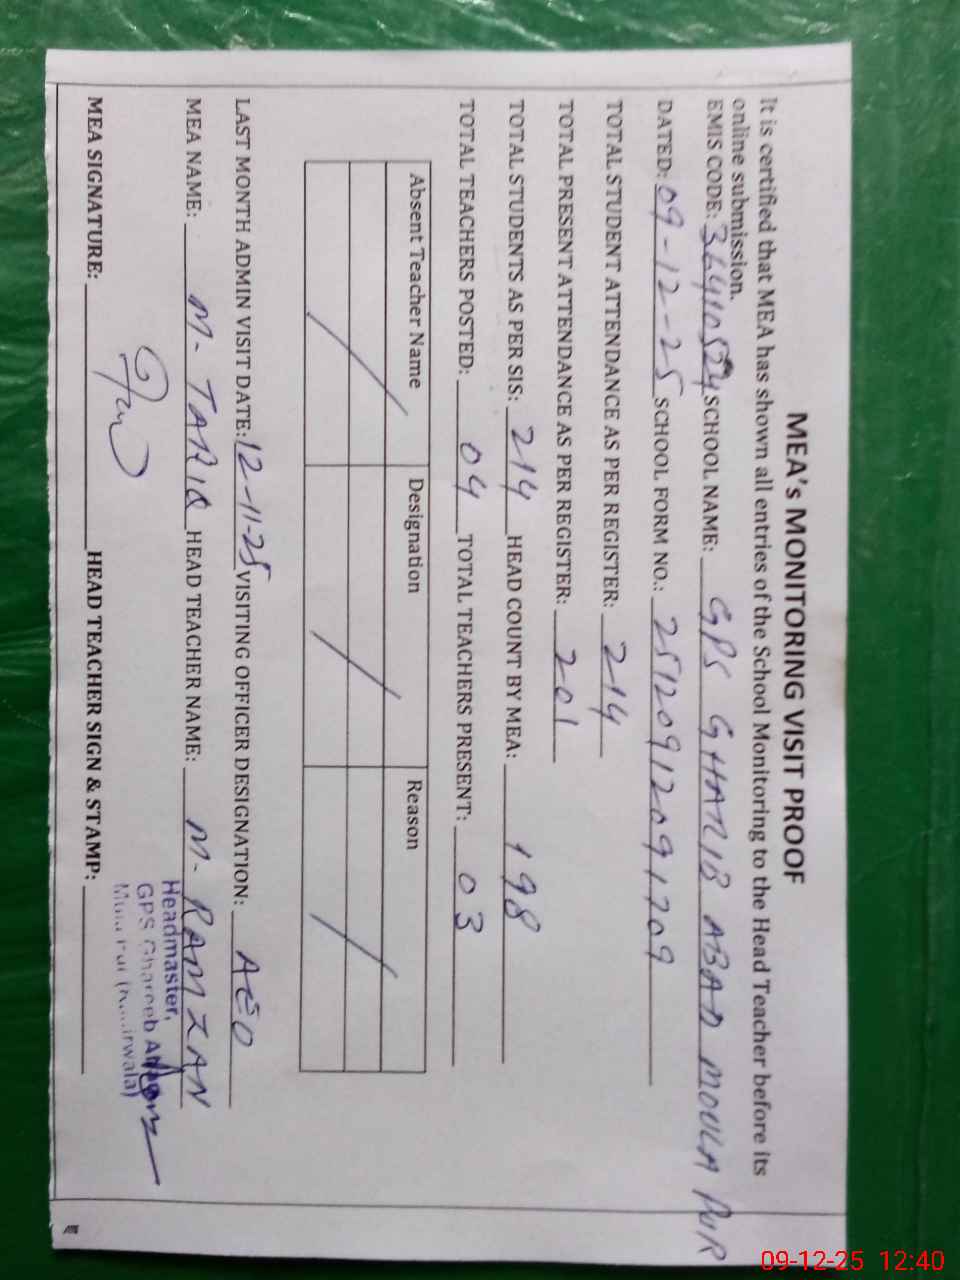 MEA's MONITORING VISIT PROOF
It is certified that MEA has shown all entries of the School Monitoring to the Head Teacher before its
online submission.
EMIS CODE: SCHOOL NAME: GPS GHARIB ABAD MOULA PUR
DATED: 09-12-25 SCHOOL FORM NO.: 25120912091709
TOTAL STUDENT ATTENDANCE AS PER REGISTER: 214
TOTAL PRESENT ATTENDANCE AS PER REGISTER: 201
TOTAL STUDENTS AS PER SIS: 214 HEAD COUNT BY MEA: 198
TOTAL TEACHERS POSTED: 04 TOTAL TEACHERS PRESENT: 03
Absent Teacher Name Designation Reason
LAST MONTH ADMIN VISIT DATE: 12-11-25 VISITING OFFICER DESIGNATION: AEO
MEA NAME: M- TARIQ HEAD TEACHER NAME: M- RAMZAN
Headmaster,
GPS Ghareeb
MEA SIGNATURE: HEAD TEACHER SIGN & STAMP:
09-12-25 12:40